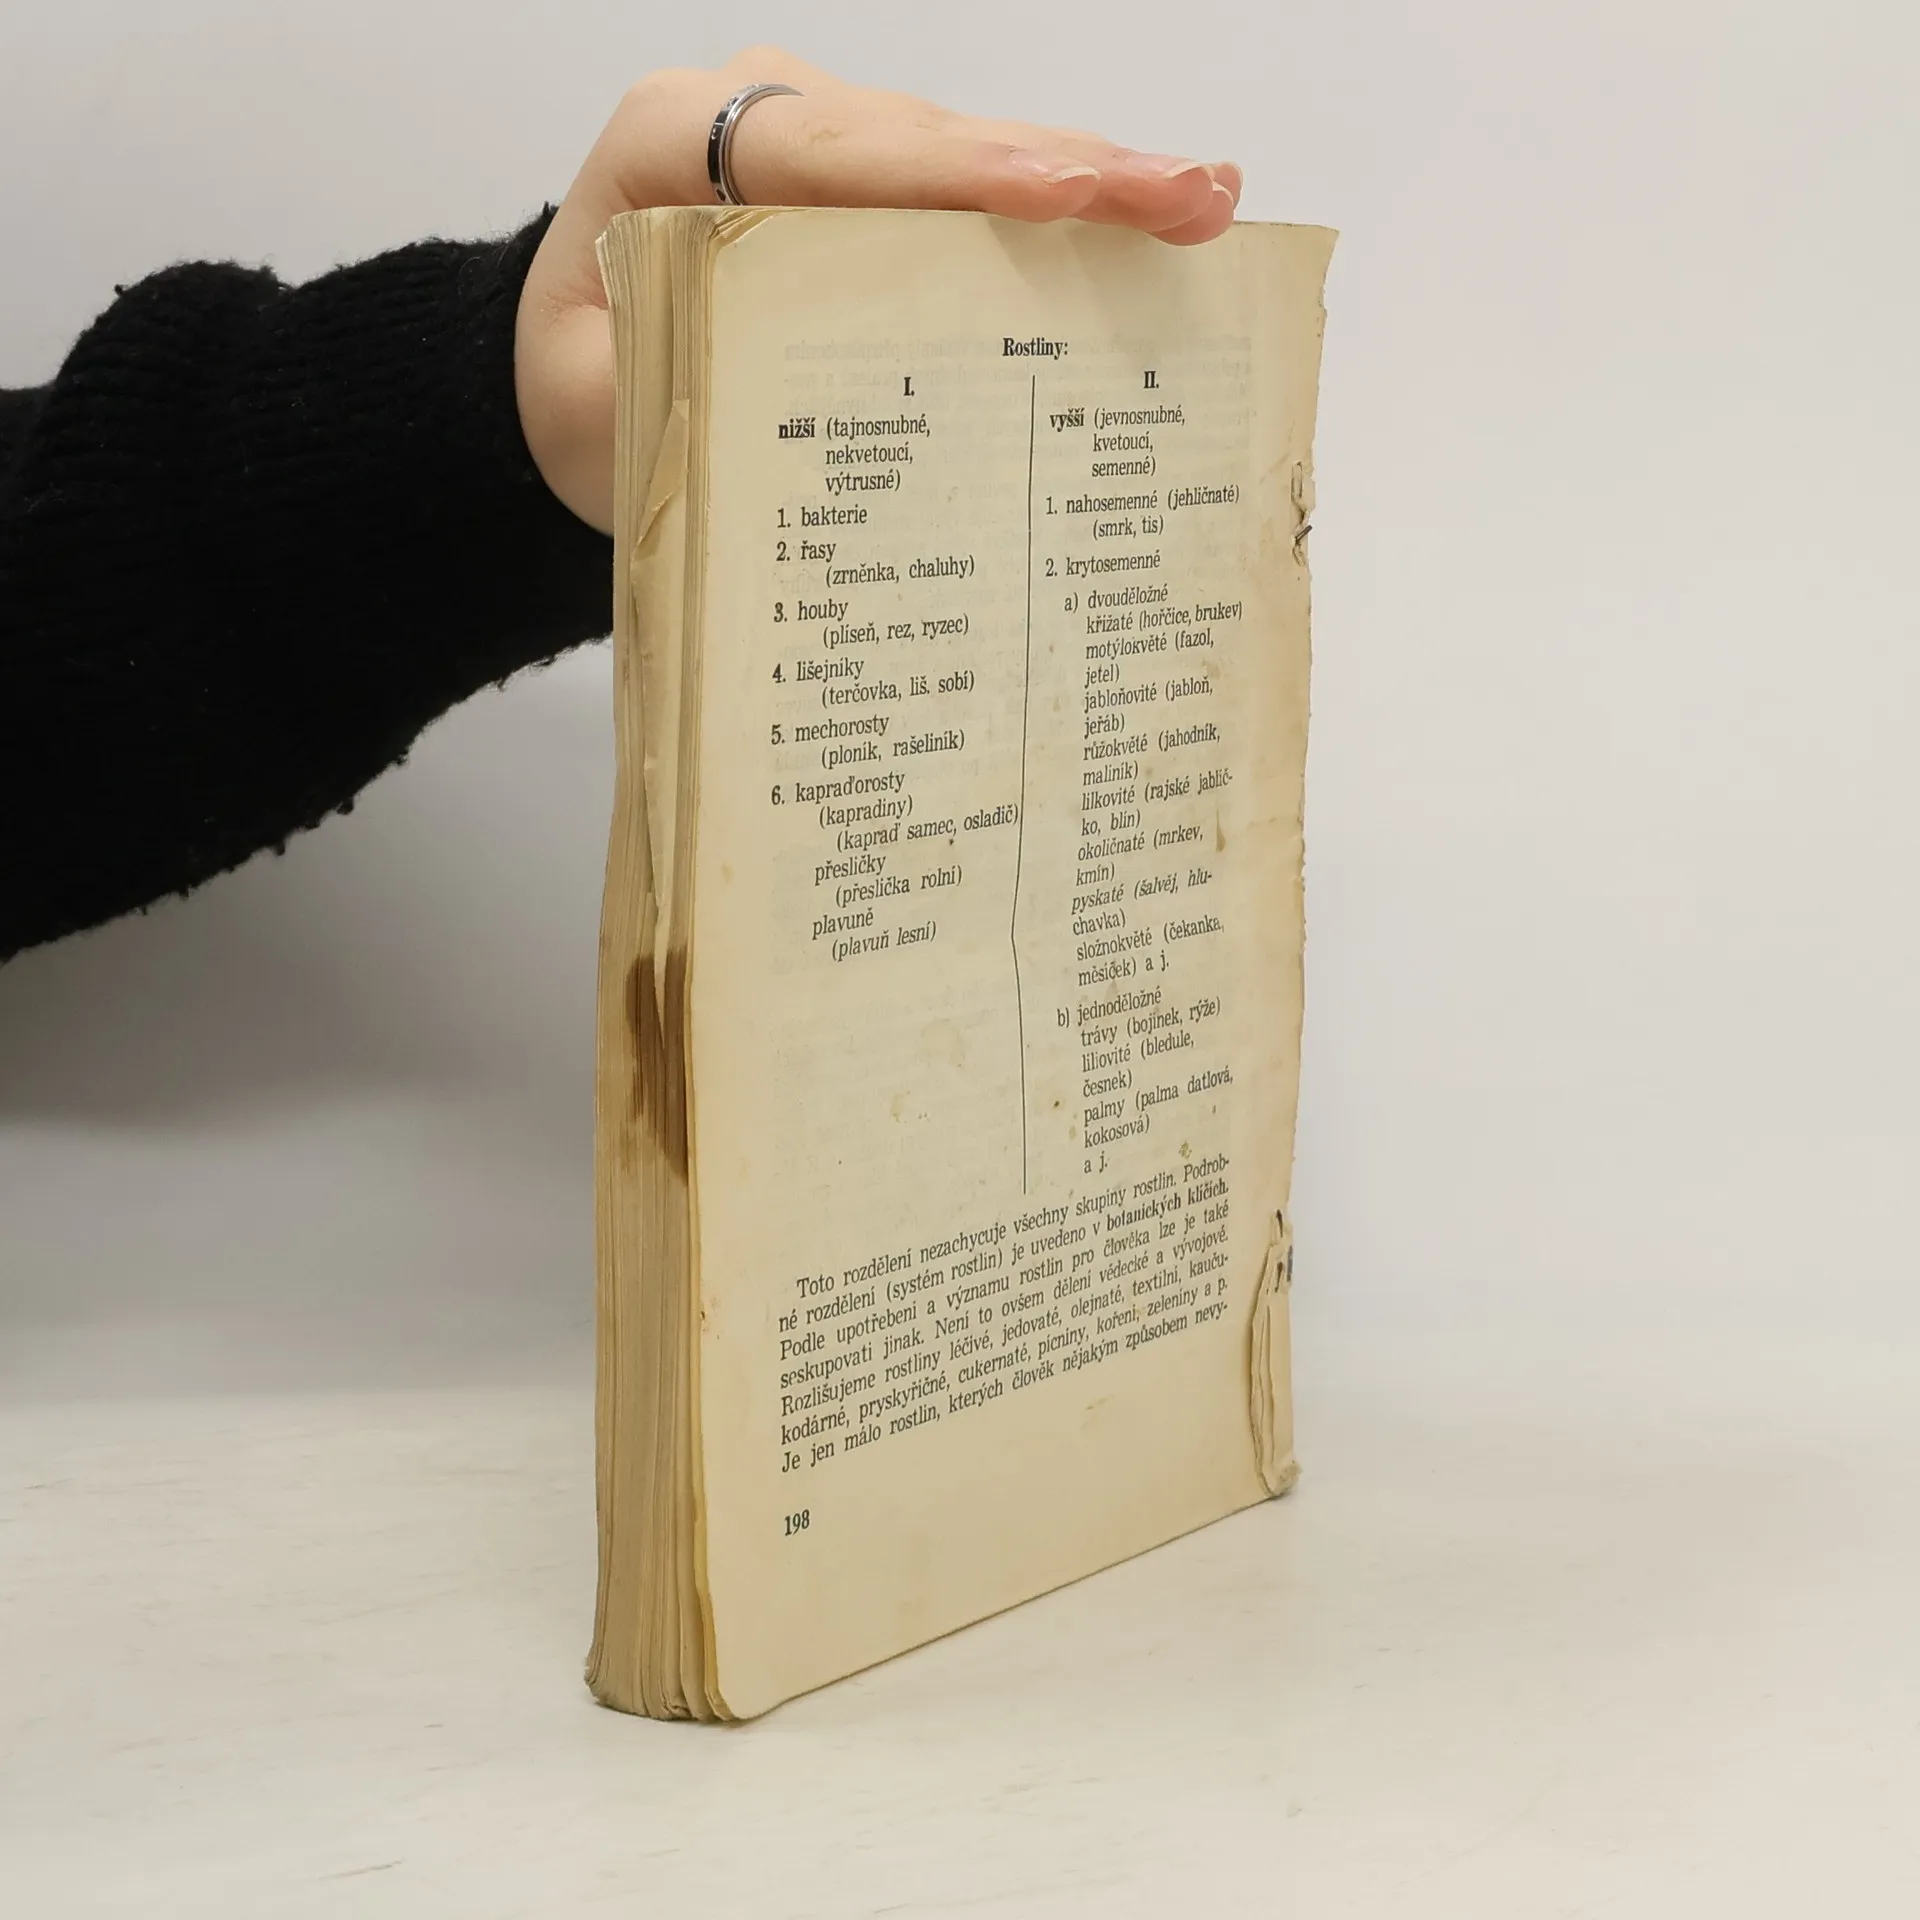 Rostliny:
I.
nižší (tajnosnubné,
nekvetoucí,
výtrusné)
1. bakterie
2. řasy
(zrněnka, chaluhy)
3. houby
(plíseň, rez, ryzec)
4. lišejníky
(terčovka, liš. sobí)
5. mechorosty
(ploník, rašeliník)
6. kapraďorosty
(kapradiny)
(kapraď samec, osladič)
přesličky
(přeslička rolní)
plavuně
(plavuň lesní)
II.
vyšší (jevnosnubné,
kvetoucí,
semenné)
1. nahosemenné (jehličnaté)
(smrk, tis)
2. krytosemenné
a) dvouděložné
křížaté (hořčice, brukev)
motýlokvěté (fazol,
jetel)
jabloňovité (jabloň,
jeřáb)
růžokvěté (jahodník,
maliník)
lilkovité (rajské jablíč-
ko, blín)
okoličnaté (mrkev,
kmín)
pyskaté (šalvěj, hlu-
chavka)
složnokvěté (čekanka,
měsíček) a j.
b) jednoděložné
trávy (bojínek, rýže)
liliovité (bledule,
česnek)
palmy (palma datlová,
kokosová)
a j.
Toto rozdělení nezachycuje všechny skupiny rostlin. Podrob-
né rozdělení (systém rostlin) je uvedeno v botanických klíčích.
Podle upotřebení a významu rostlin pro člověka lze je také
seskupovati jinak. Není to ovšem dělení vědecké a vývojové.
Rozlišujeme rostliny léčivé, jedovaté, olejnaté, textilní, kauču-
kodárné, pryskyřičné, cukernaté, pícniny, koření, zeleniny a p.
Je jen málo rostlin, kterých člověk nějakým způsobem nevy-
198